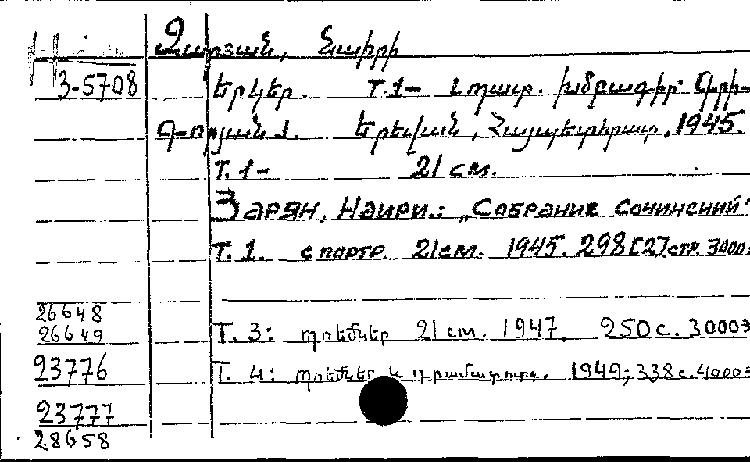 Զարյան, Նաիրի
3-5708 Երկեր. Т.1- Նպատ. խմբագիր:
Երևան, Հայպետհրատ, 1945.
Т. 1- 21 см.
Зарян, Наири.: „Собрание сочинений“
Т. 1. с портр. 21см. 1945. 298[2]стр. 3000э
26648
26649 Т. 3: պոեմներ 21 см. 1947. 250 с. 3000э
23776 Т. 4: պոեմներ և դրամատուրգ. 1949; 338 с. 4000э
23777
28658